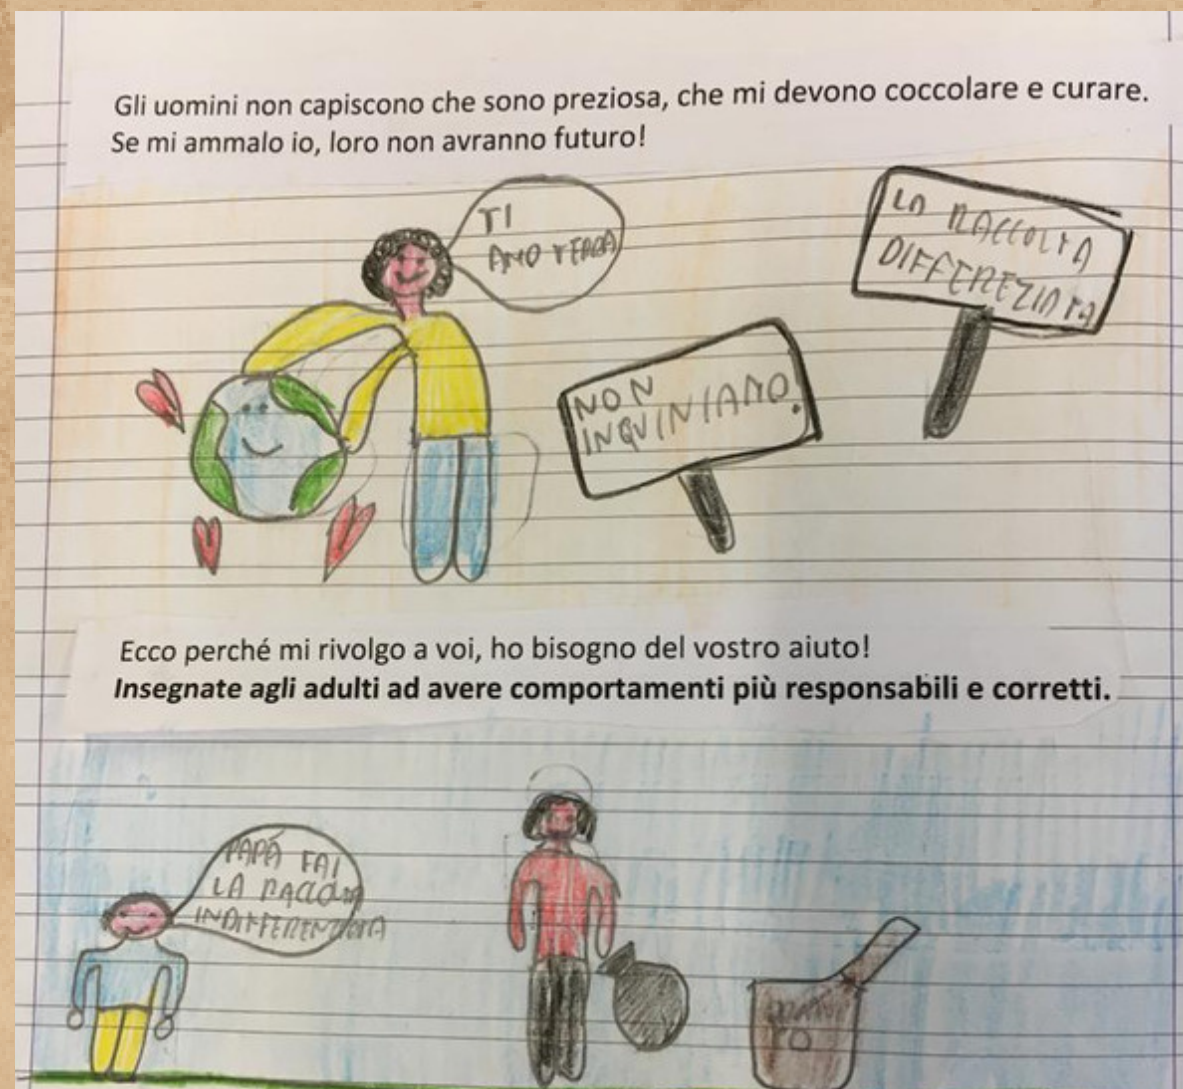 Gli uomini non capiscono che sono preziosa, che mi devono coccolare e curare.
Se mi ammalo io, loro non avranno futuro!
TI
AMO TERRA
LA RACCOLTA
DIFFEREZIATA
NON
INQUINIAMO!
Ecco perché mi rivolgo a voi, ho bisogno del vostro aiuto!
Insegnate agli adulti ad avere comportamenti più responsabili e corretti.
PAPÀ FAI
LA RACCOLTA
INDIFFERENZIATA